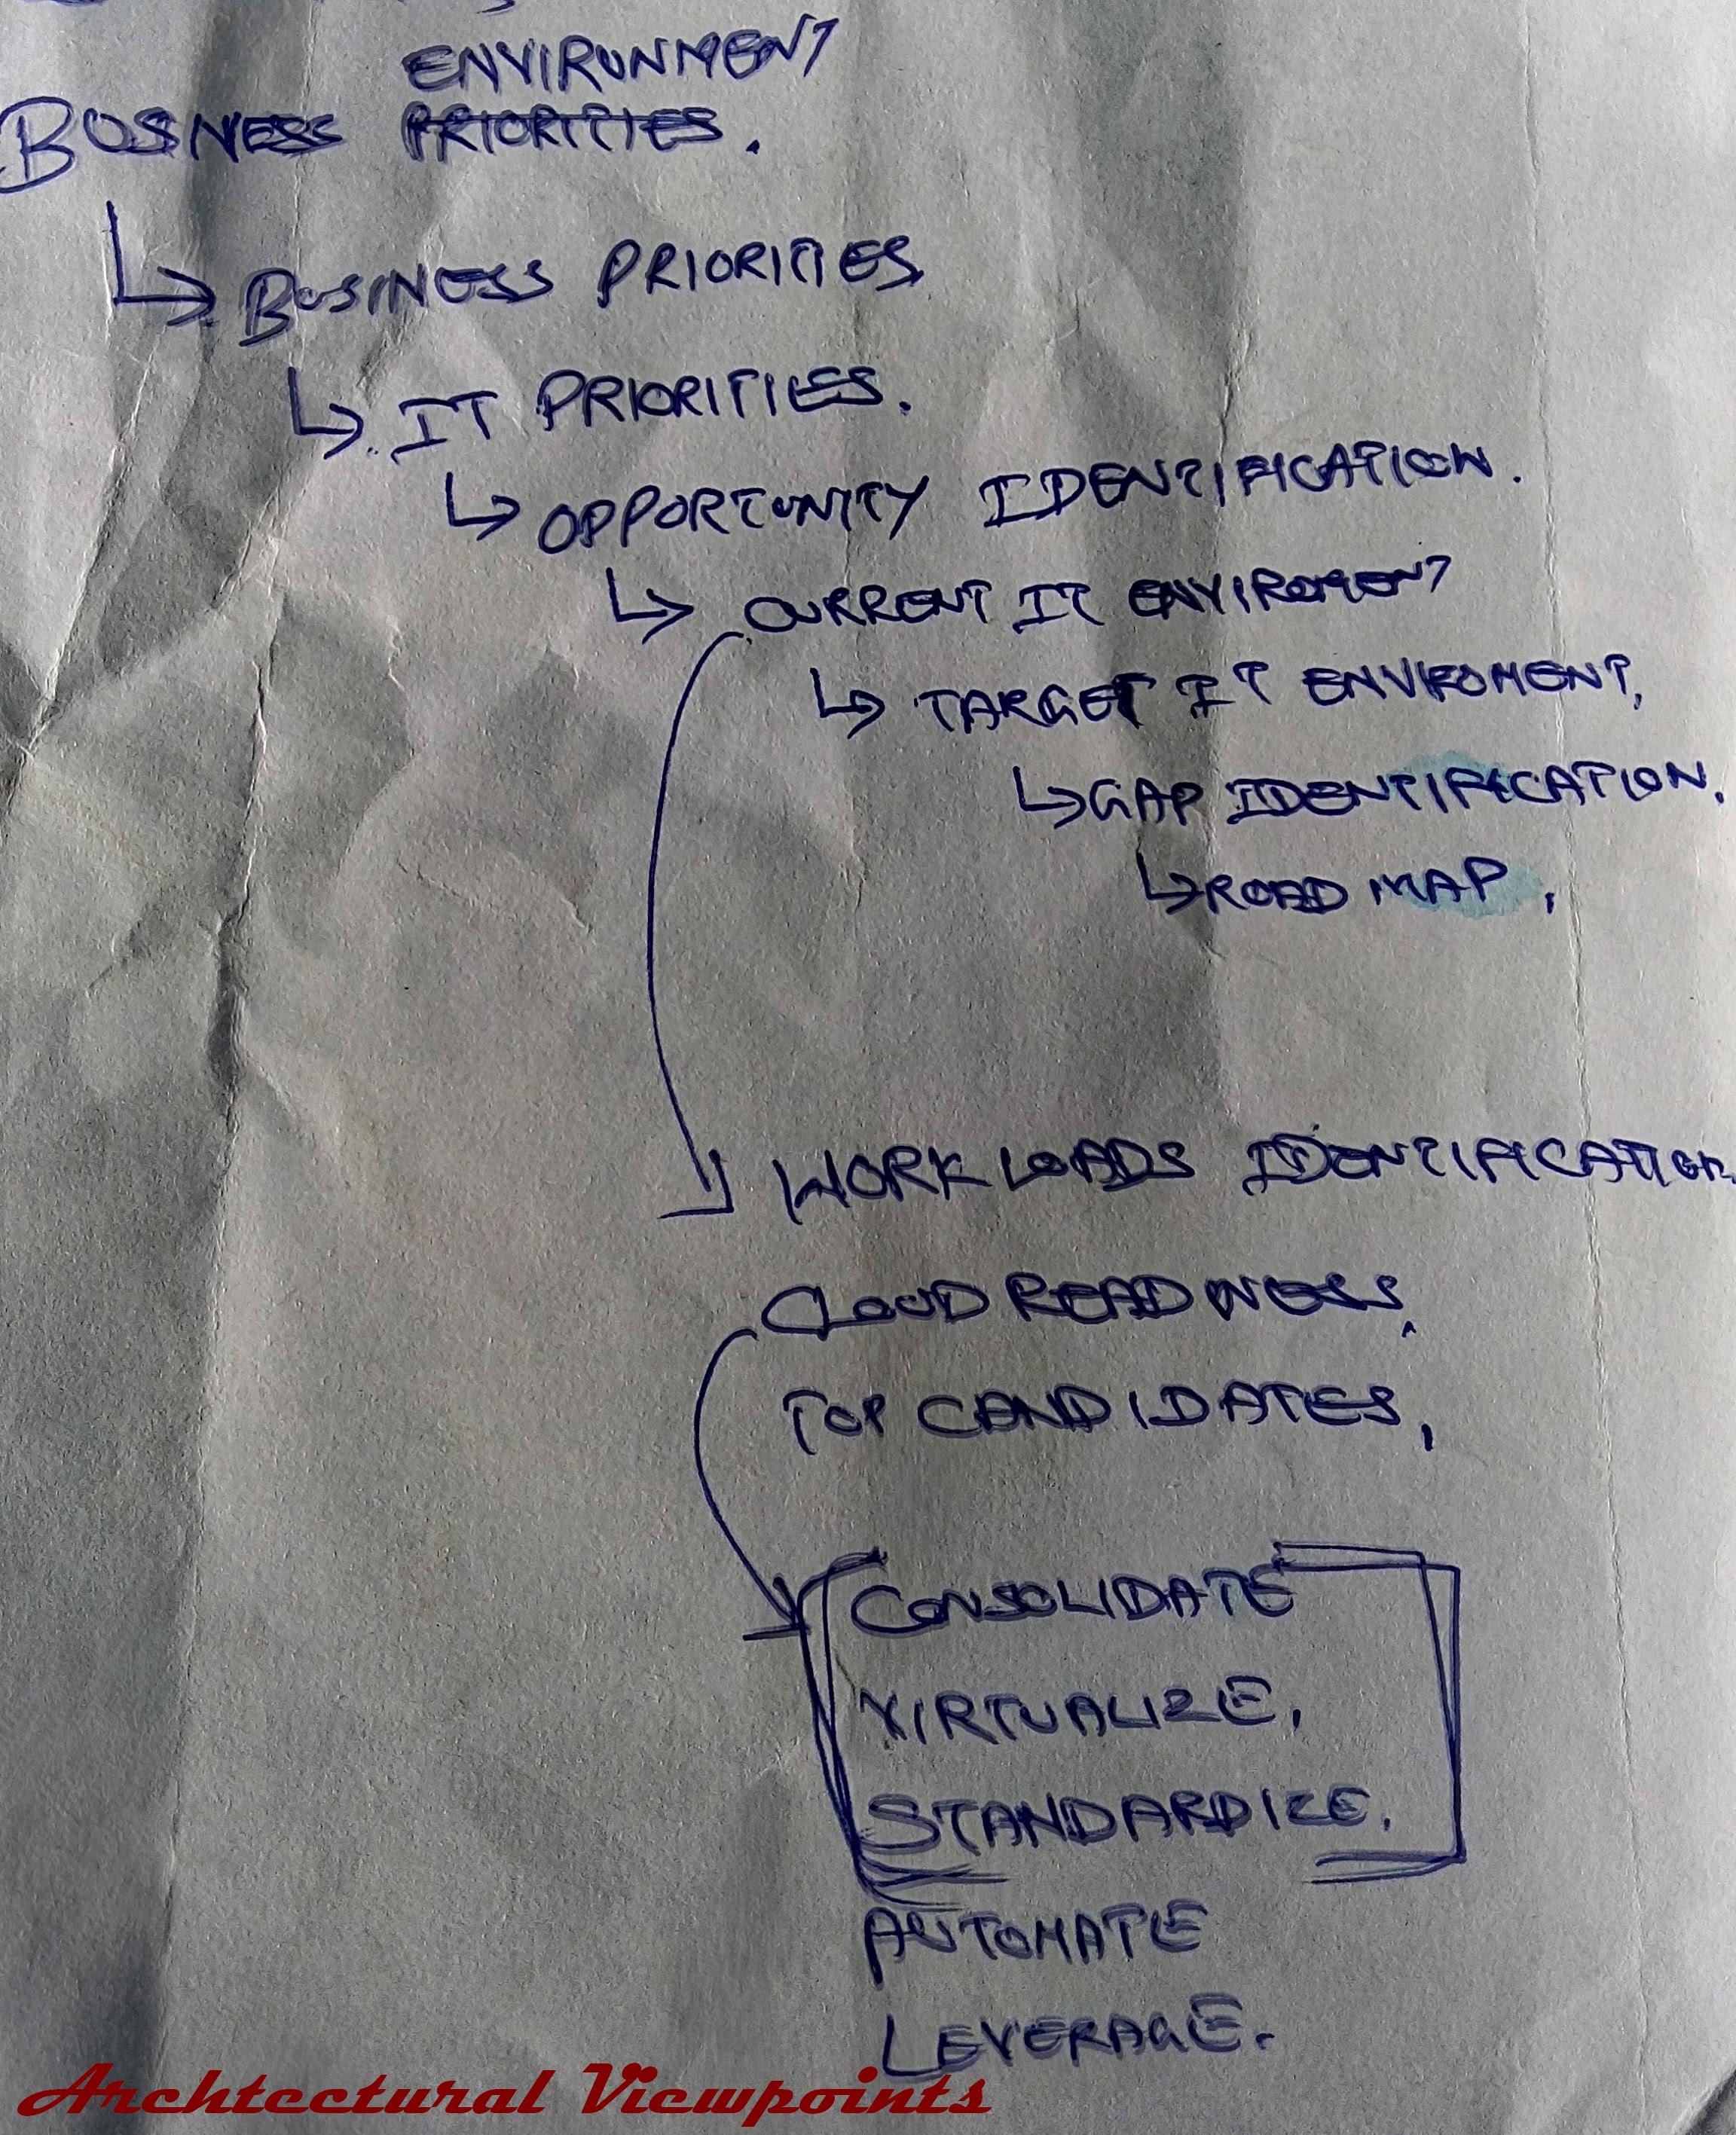 ENVIRONMENT
BUSNESS PRIORITIES.
BUSINESS PRIORITIES
IT PRIORITIES.
OPPORTUNITY IDENTIFICATION.
CURRENT IT ENVIROMENT
TARGET IT ENVIROMENT,
GAP IDENTIFICATION.
ROAD MAP,
WORK LOADS IDENTIFICATION
CLOUD READINESS,
TOP CANDIDATES,
CONSOLIDATE
VIRTUALIZE,
STANDARDIZE,
AUTOMATE
LEVERAGE.
Archtectural Viewpoints